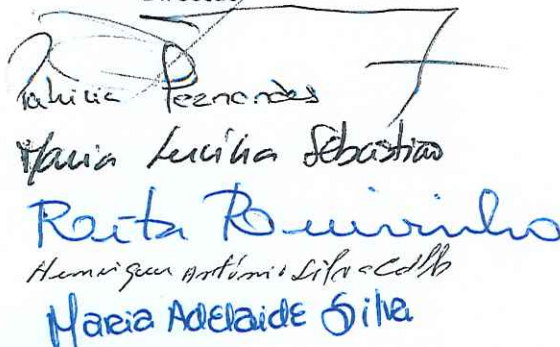 Patricia Fernandes
Maria Lucília Sebastião
Rita Ruivinho
Henrique António Silva
Maria Adelaide Silva